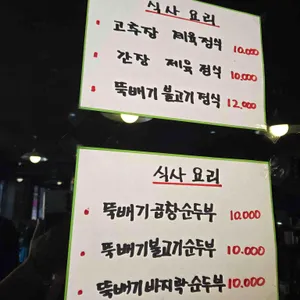 식사 요리
• 고추장 제육정식 10,000
• 간장 제육정식 10,000
• 뚝배기 불고기정식 12,000
식사 요리
• 뚝배기 곱창순두부 10,000
• 뚝배기불고기순두부 10,000
• 뚝배기 바지락순두부 10,000